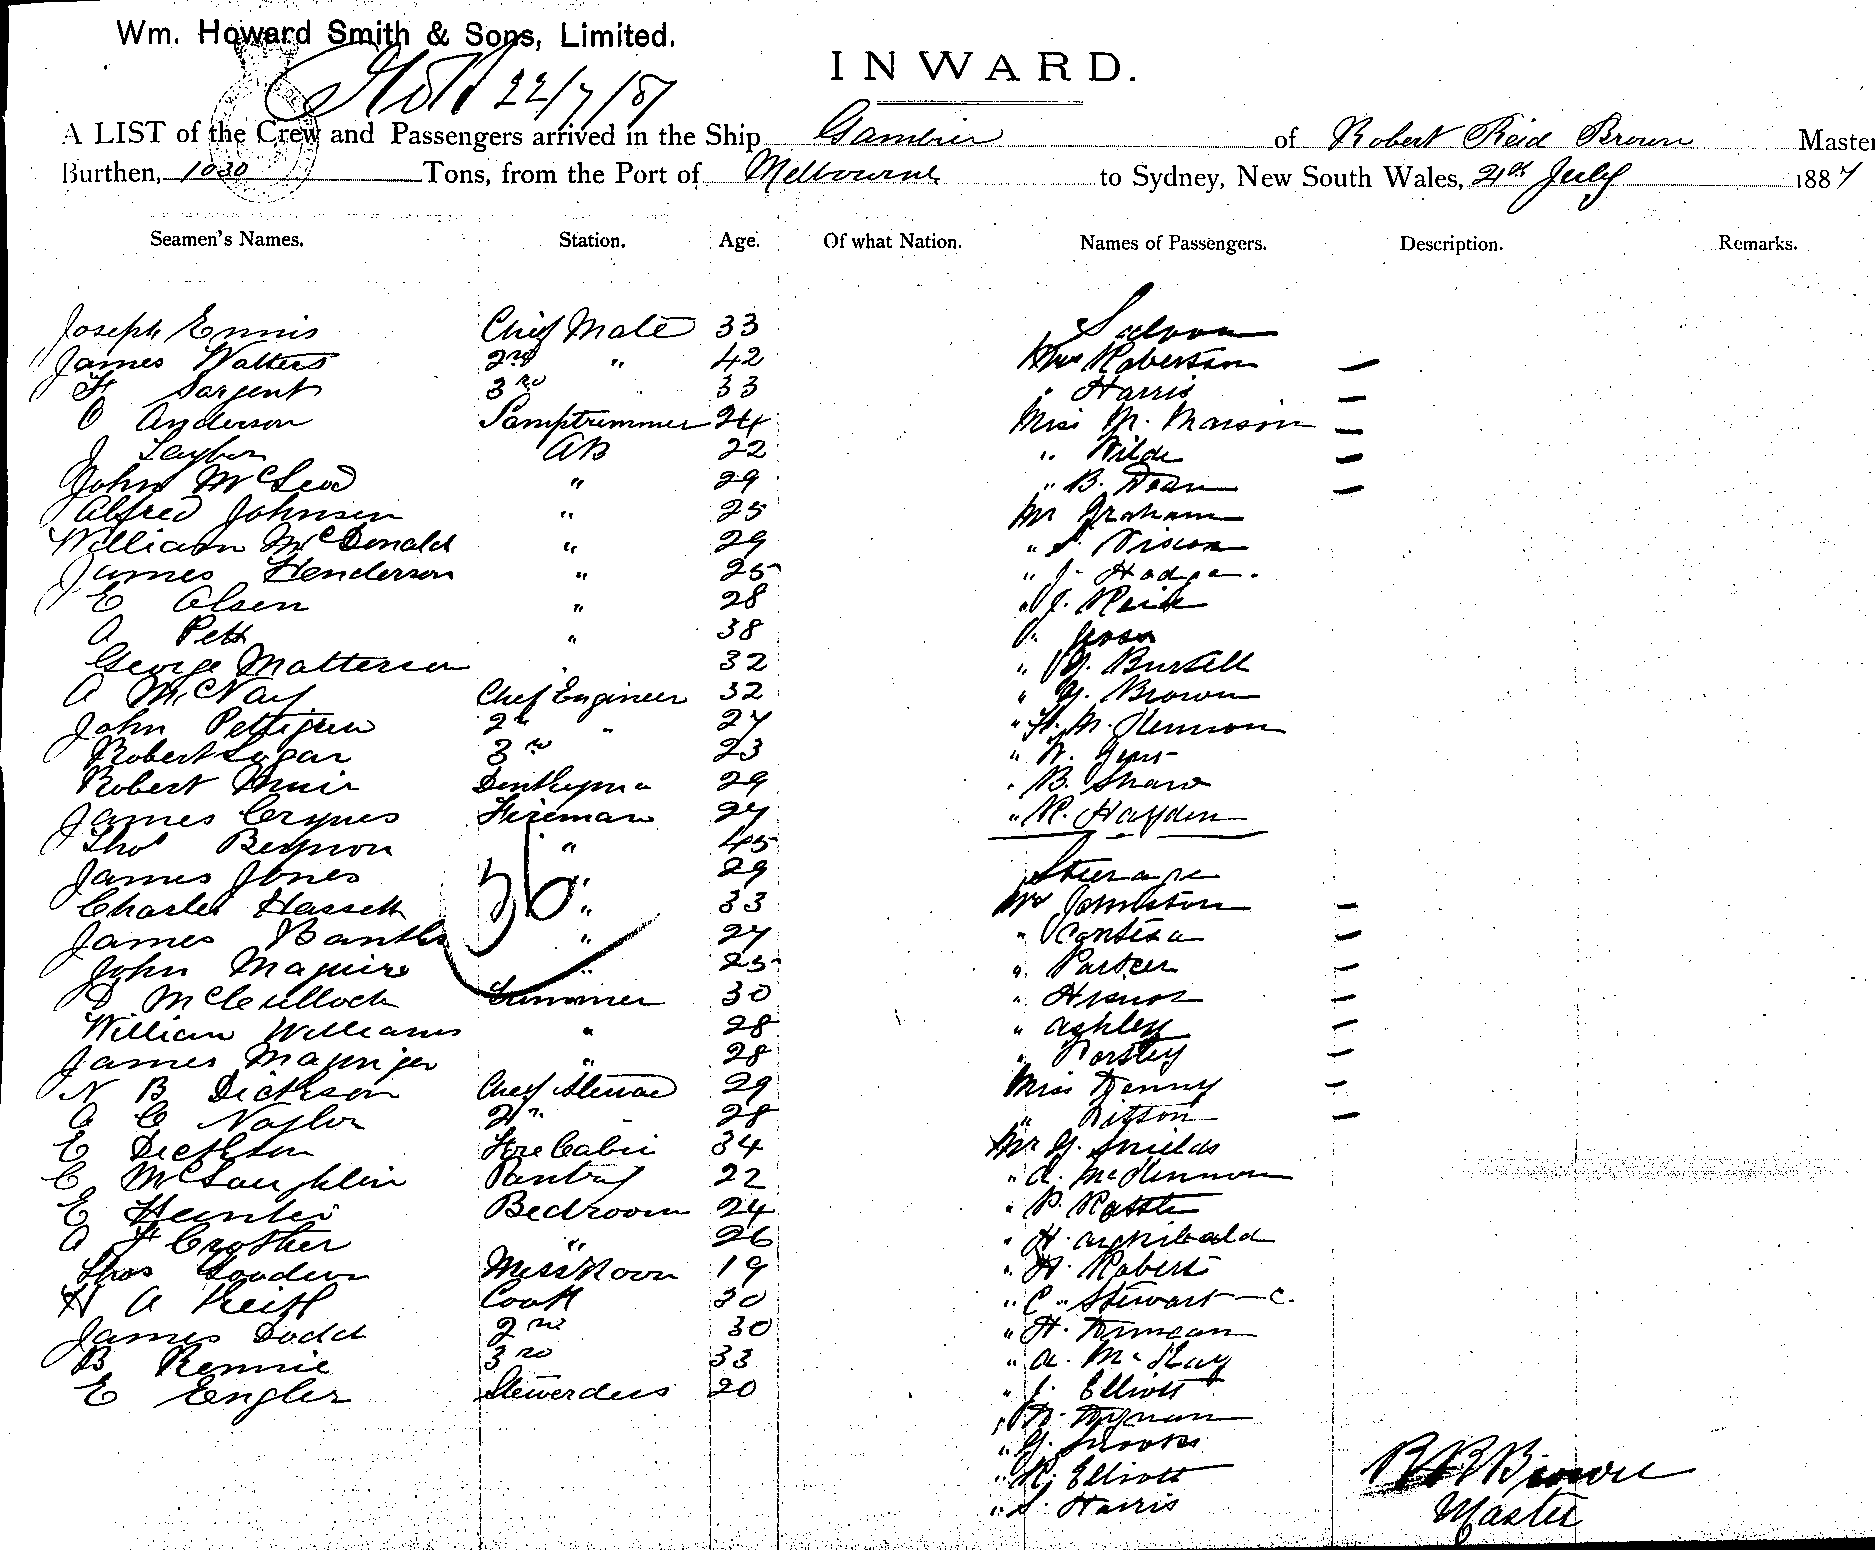 Wm. Howard Smith & Sons, Limited.
INWARD.
22/7/87
A LIST of the Crew and Passengers arrived in the Ship Gambier of Robert Reid Brown Master
Burthen, 1030 Tons, from the Port of Melbourne to Sydney, New South Wales, 21st July 1887
Seamen's Names. Station. Age. Of what Nation. Names of Passengers. Description. Remarks.
Joseph Ennis Chief Mate 33 Saloon
James Walters 2nd " 42 Mrs Robertson —
Sargent 3rd 33 " Harris —
Anderson Lamptrimmer 24 Miss M. —
J Taylor AB 22 " Wilde —
John McLeod " 29 " B. Dean —
Alfred Johnsen " 25 Mr Graham
William McDonald " 29 "
James Henderson " 25 " J.
E Olsen " 28 " J. Reid
A Pett " 38 "
George Matterson 32 " G. Burkell
A McNay Chief Engineer 32 " G. Brown
John Pettigrew 2nd " 27 "
Robert 3rd 23 " W.
Robert Muir Donkeyman 29 " B. Shaw
James Fireman 27 " R. Hayden
Thos Beynon " 45
James Jones " 29 Steerage
Charles Hassett " 33 Johnston —
James " 27 " —
John Maguire " 25 " Parker —
D McCulloch Trimmer 30 " —
William Williams " 28 " Ashley —
James " 28 " —
N B Dickson Chief Steward 29 Miss Denny —
A C Naylor 2nd " 28 " —
E Dickson Fore Cabin 34 Mr G. Shields
C McLaughlin Pantry 22 " A. McKinnon
E Hunter Bedroom 24 " P.
A F Crother " 26 " H. Archibald
Thos Goodwin Mess Room 19 " H. Roberts
H A Keith Cook 30 " C. Stewart — C.
James Dodd 2nd 30 " H. Duncan
B Rennie 3rd 33 " A. McKay
E Engler Stewerdess 20 " J. Elliott
" G. Brooks
" R. Elliott
" S. Harris
36
R R Brown
Master